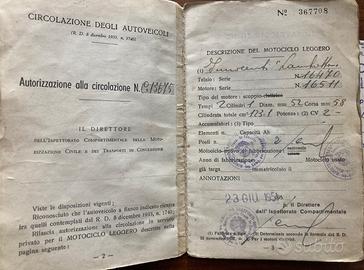 CIRCOLAZIONE DEGLI AUTOVEICOLI
(R. D. 8 dicembre 1933, n. 1740)
Autorizzazione alla circolazione N.
IL DIRETTORE
DELL'ISPETTORATO COMPARTIMENTALE DELLA MOTO-
RIZZAZIONE CIVILE E DEI TRASPORTI IN CONCESSIONE
Viste le disposizioni vigenti;
Riconosciuto che l'autoveicolo a fianco indicato rientra
tra quelli contemplati dal R. D. 8 dicembre 1933, n. 1740;
Rilascia autorizzazione alla circolazione in servizio
privato per il MOTOCICLO LEGGERO descritto nella
pagina seguente:
- 2 -
No 367708
DESCRIZIONE DEL MOTOCICLO LEGGERO
(1) Innocenti Lambretta
Telaio: Serie 16470
Motore: Serie 16511
Tipo del motore: scoppio
Tempi 2 Cilindri 1 Diam. 52 Corsa 58
Cilindrata totale cm³ 123.1 Potenza (2) CV 2-
Accensione, tipo
Elementi n. Capacità Ah
Posti n.
Anno di fabbricazione Motociclo usato
già targa immatricolato il
ANNOTAZIONI
23 GIU 195
p. il Direttore
dell'Ispettorato Compartimentale
- 3 -
subito